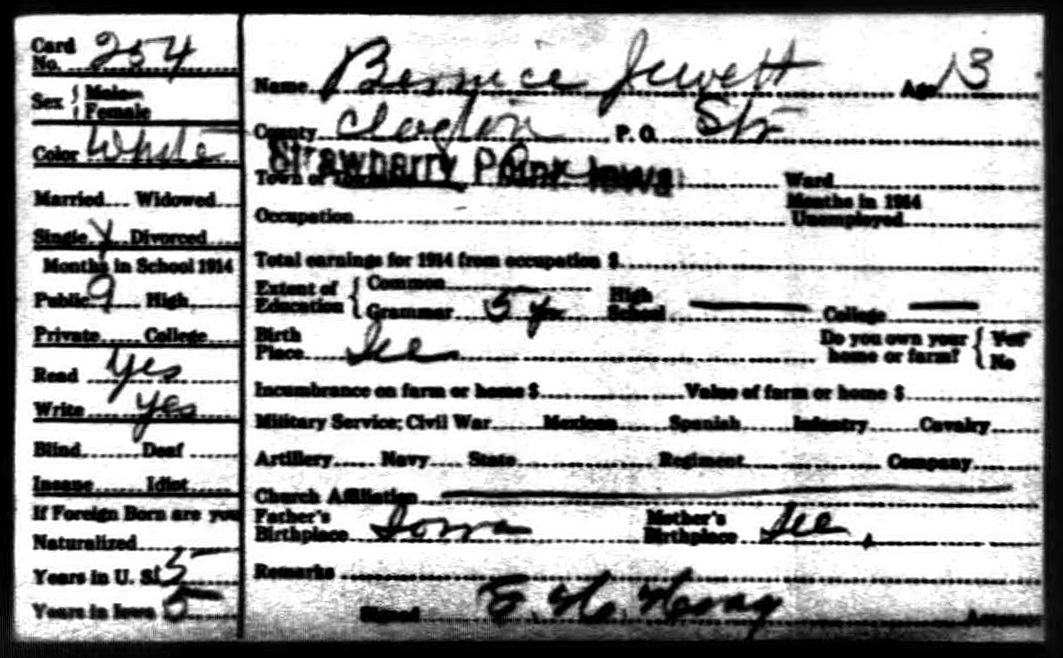 Card No. 254
Sex { Male Female
Color White
Married.... Widowed....
Single X Divorced....
Months in School 1914
Public 9 High....
Private.... College....
Read yes
Write yes
Blind.... Deaf....
Insane.... Idiot....
If Foreign Born are you
Naturalized....
Years in U. S. 5
Years in Iowa 5
Name Bernice Jewett Age 13
County Clayton P. O. Str
Strawberry Point Iowa
Town or Ward
Occupation.... Months in 1914 Unemployed....
Total earnings for 1914 from occupation $....
Extent of Education { Common.... Grammar 5 yr High School — College —
Birth Place Ill Do you own your home or farm? { Yes No
Incumbrance on farm or home $.... Value of farm or home $....
Military Service; Civil War.... Mexican.... Spanish.... Infantry.... Cavalry....
Artillery.... Navy.... State.... Regiment.... Company....
Church Affiliation
Father's Birthplace Iowa Mother's Birthplace Ill,
Remarks
Signed Assessor